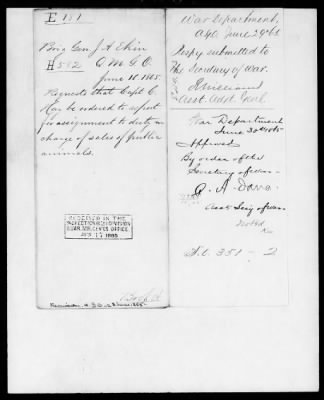 E 181
Brig Gen J. A. Ekin
H 582 Q M G O
June 10, 1865.
Requests that Capt C.
Hay be ordered to report
for assignment to duty in
charge of sales of public
animals.
RECEIVED IN THE
INSPECTION DIVISION
Q.MR. GEN'S OFFICE,
JUN 17 1865
War Department,
AGO June 29 65
Respy submitted to
The Secretary of War.
Asst. Adjt. Genl.
War Department
June 30 1865
Approved
By order of the
Secretary of War
C. A. Dana
Asst Secy of War
2